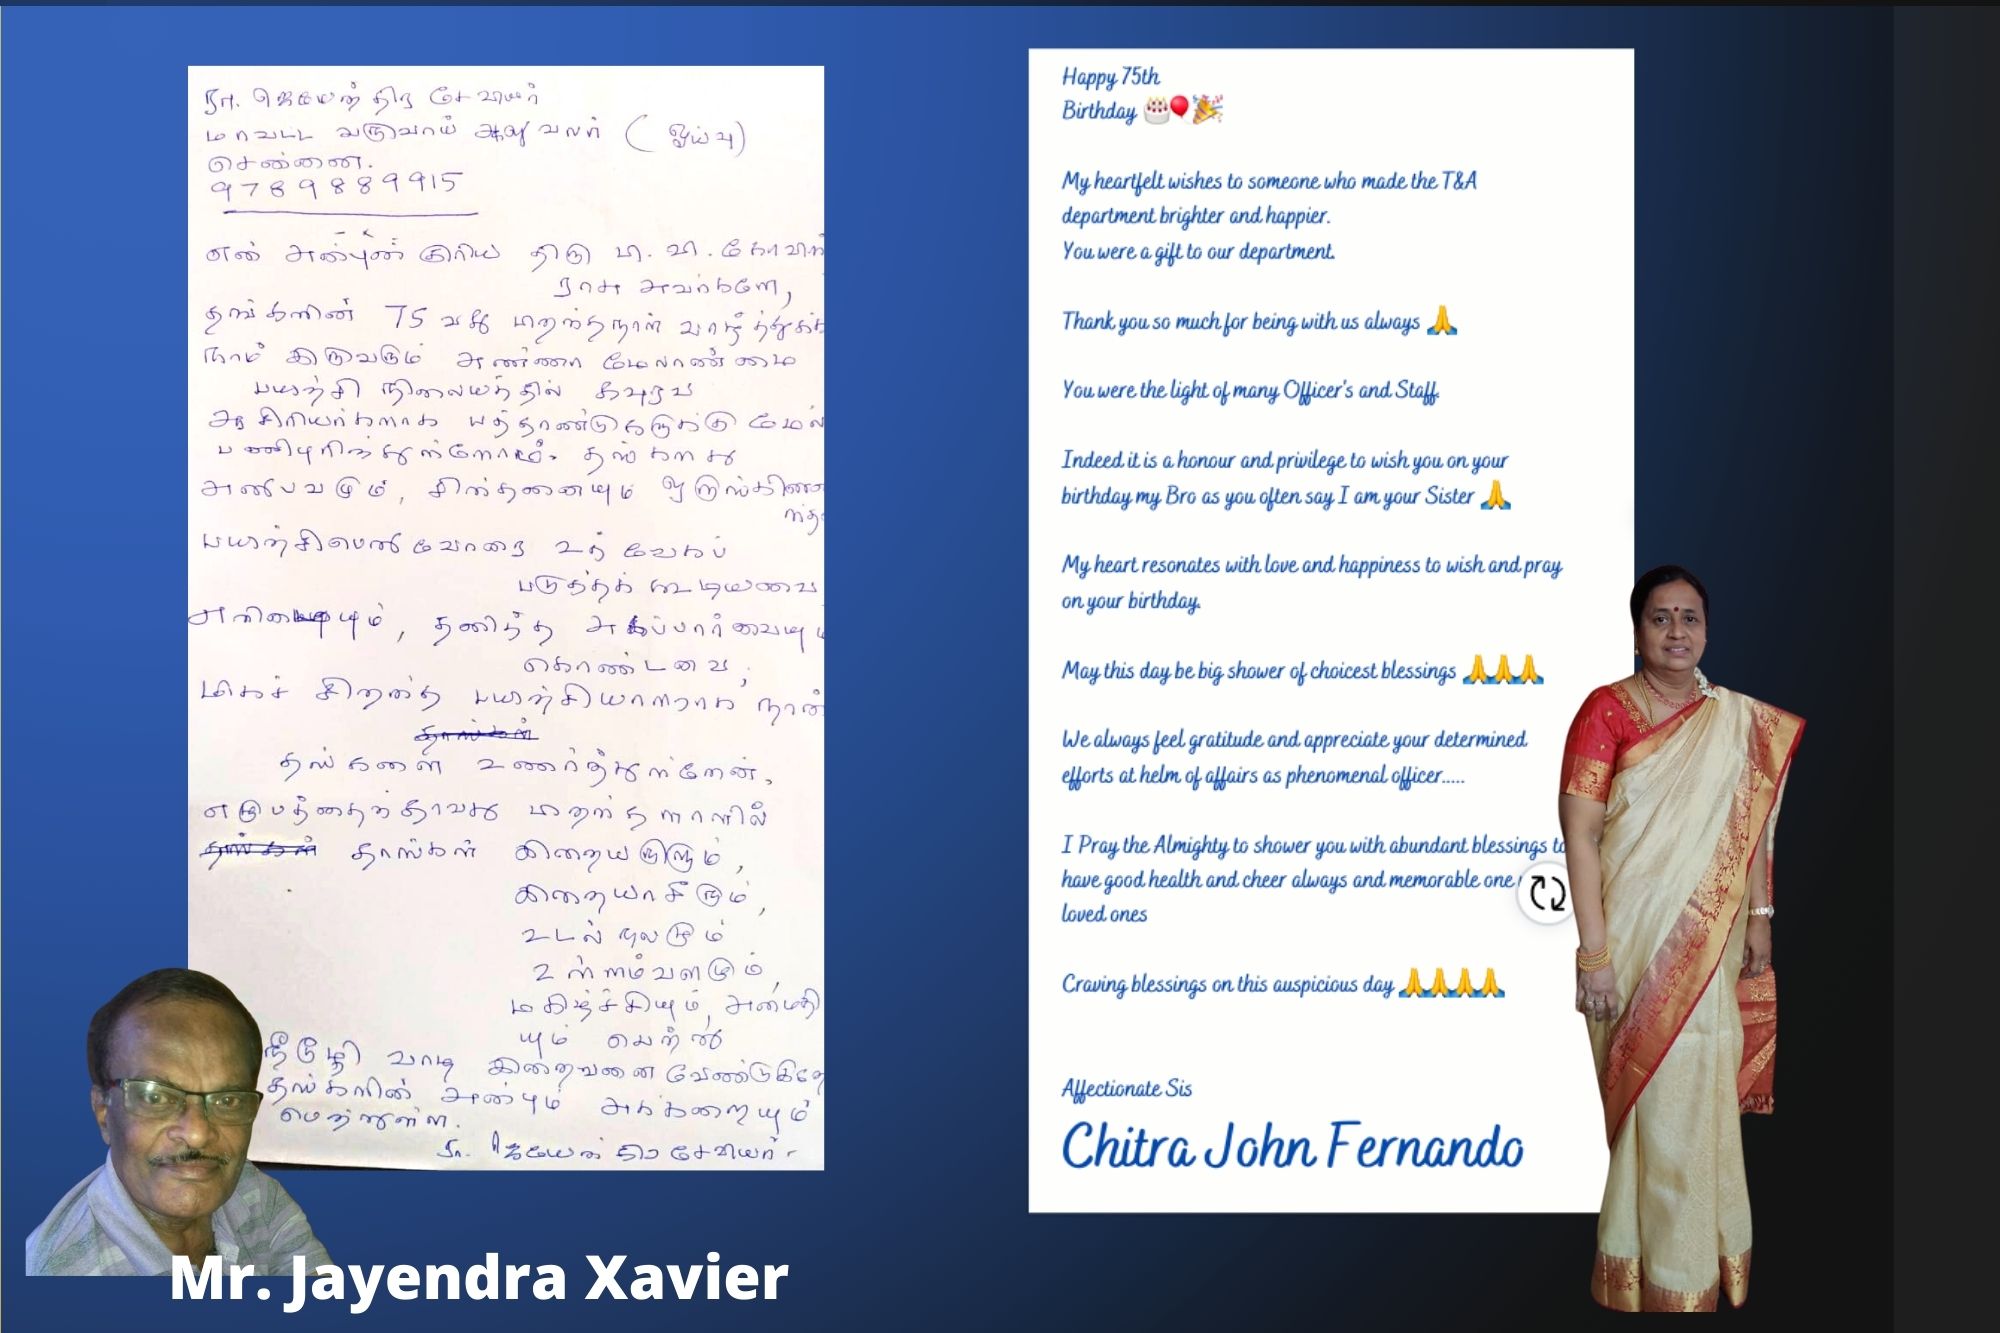 நா. ஜெயேந்திர சேவியர்
மாவட்ட வருவாய் அலுவலர் ( ஓய்வு )
சென்னை.
9789889915
என் அன்புக்குரிய திரு பி. வி. கோவிந்
ராசு அவர்களே,
தங்களின் 75 வது பிறந்தநாள்
நாம் இருவரும் அண்ணா மேலாண்மை
பயிற்சி நிலையத்தில் கவுரவ
ஆசிரியர்களாக பத்தாண்டுகளுக்கு மேல்
பணிபுரிந்துள்ளோம். தங்களது
அனுபவமும், சிந்தனையும்
பயிற்சிபெறுவோரை உத்வேகப்
படுத்தக் கூடியவை
தணிந்த
கொண்டவை,
மிகச் சிறந்த பயிற்சியாளராக நான்
தாங்கள்
தங்களை உணர்ந்துள்ளேன்.
எழுபத்தைந்தாவது பிறந்தநாளில்
தாங்கள் இறையருளும்,
இறையாசீரும்,
உடல் நலமும்
உள்ளம்வளமும்,
மகிழ்ச்சியும், அமைதி
யும் பெற்று
நீடூழி வாழ இறைவனை
தங்களின் அன்பும் அக்கறையும்
பெற்றுள்ள.
நா. ஜெயேந்திர சேவியர்.
Mr. Jayendra Xavier
Happy 75th
Birthday 🎂🎈🎉
My heartfelt wishes to someone who made the T&A
department brighter and happier.
You were a gift to our department.
Thank you so much for being with us always 🙏
You were the light of many Officer's and Staff.
Indeed it is a honour and privilege to wish you on your
birthday my Bro as you often say I am your Sister 🙏
My heart resonates with love and happiness to wish and pray
on your birthday.
May this day be big shower of choicest blessings 🙏🙏🙏
We always feel gratitude and appreciate your determined
efforts at helm of affairs as phenomenal officer.....
I Pray the Almighty to shower you with abundant blessings to
have good health and cheer always and memorable one
loved ones
Craving blessings on this auspicious day 🙏🙏🙏🙏
Affectionate Sis
Chitra John Fernando